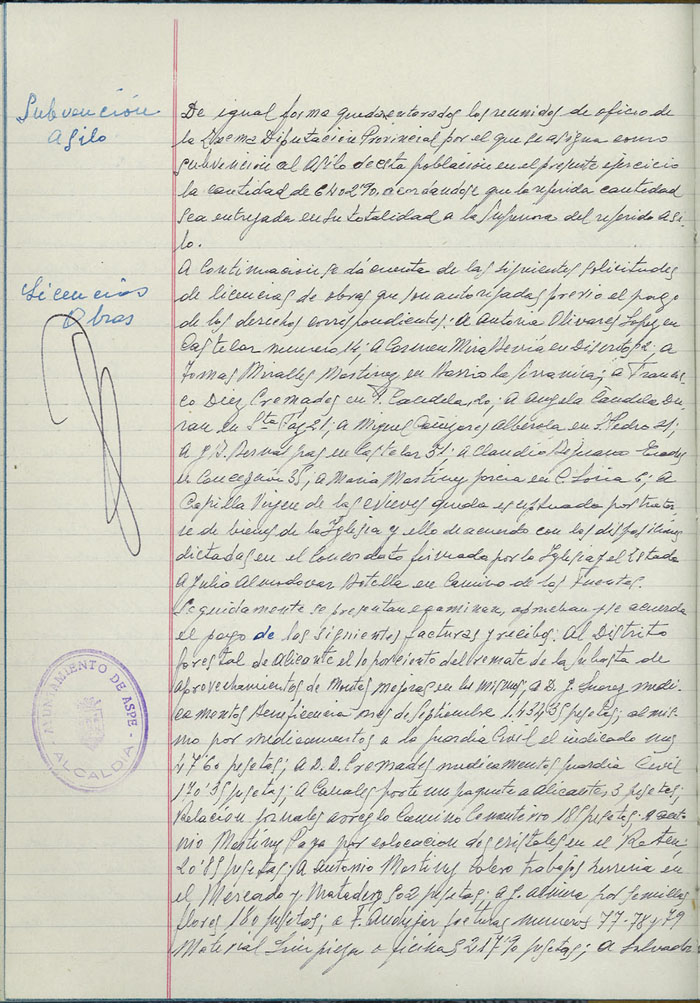 Subvención
Asilo
De igual forma quedan enterados los reunidos de oficio de
la Excma Diputación Provincial por el que se asigna como
subvención al Asilo de esta población en el presente ejercicio
la cantidad de acordandose que la referida cantidad
sea entregada en su totalidad a la Superiora del referido Asi-
lo.
Licencias
Obras
A continuacion se dá cuenta de las siguientes solicitudes
de licencias de obras que son autorizadas previo el pago
de los derechos correspondientes: A Antonia Olivares Lopez en
Castelar numero 14; A Carmen Mira en a
Tomas Miralles Martinez en Barrio la Serranica; a Francis-
co Diez Cremades en F. Candela, 20; A Angela Candela Du-
ran en Sta Faz 21; A Miguel Alberola en S. Pedro 21;
A en Castelar 31; A Claudio
en Concepción 35; A Maria Martinez en 6; A
Capilla Virgen de las Nieves queda exceptuada por tratar-
se de bienes de la Iglesia y ello de acuerdo con las disposiciones
dictadas en el Concordato firmado por la Iglesia y el Estado
A Julia Almodovar Botella en Camino de las Fuentes.
Seguidamente se presentan examinan, aprueban y se acuerda
el pago de los siguientes facturas y recibos: Al Distrito
forestal de Alicante el 10 por ciento del remate de la subasta de
aprovechamientos de Montes mejoras en los mismos; a D. J. Suarez medi-
camentos Beneficencia mes de Septiembre 1.434'35 pesetas; al mis-
mo por medicamentos a la guardia Civil el indicado mes
47'60 pesetas; A D. D. Cremades medicamentos guardia Civil
170'35 pesetas; A Canales porte un paquete a Alicante 3 pesetas;
Relacion jornales arreglo Camino Cementerio 185 pesetas. A Anto-
nio Martinez por colocacion dos cristales en el
20'85 pesetas; A Antonio Martinez trabajos herreria en
el Mercado y Matadero 502 pesetas. a J. por semillas
flores 180 pesetas; a F. Andujar facturas numeros 77-78 y 79
Material limpieza oficinas 217'90 pesetas; A Salvador
AYUNTAMIENTO DE ASPE
ALCALDIA